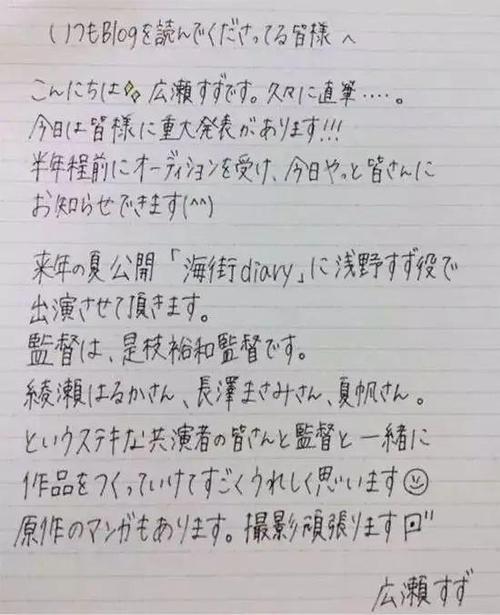 いつもBlogを読んでくださってる皆様へ
こんにちは 広瀬すずです。久々に直筆……。
今日は皆様に重大発表があります!!!
半年程前にオーディションを受け、今日やっと皆さんに
お知らせできます(^^)
来年の夏公開「海街diary」に浅野すず役で
出演させて頂きます。
監督は、是枝裕和監督です。
綾瀬はるかさん、長澤まさみさん、夏帆さん。
というステキな共演者の皆さんと監督と一緒に
作品をつくっていけてすごくうれしく思います
原作のマンガもあります。撮影頑張ります
広瀬すず